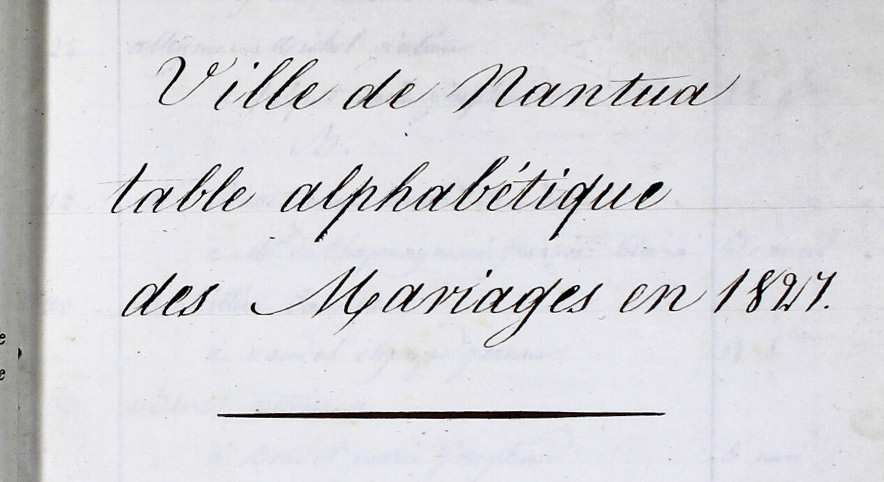 Ville de Nantua
table alphabétique
des Mariages en 1827.